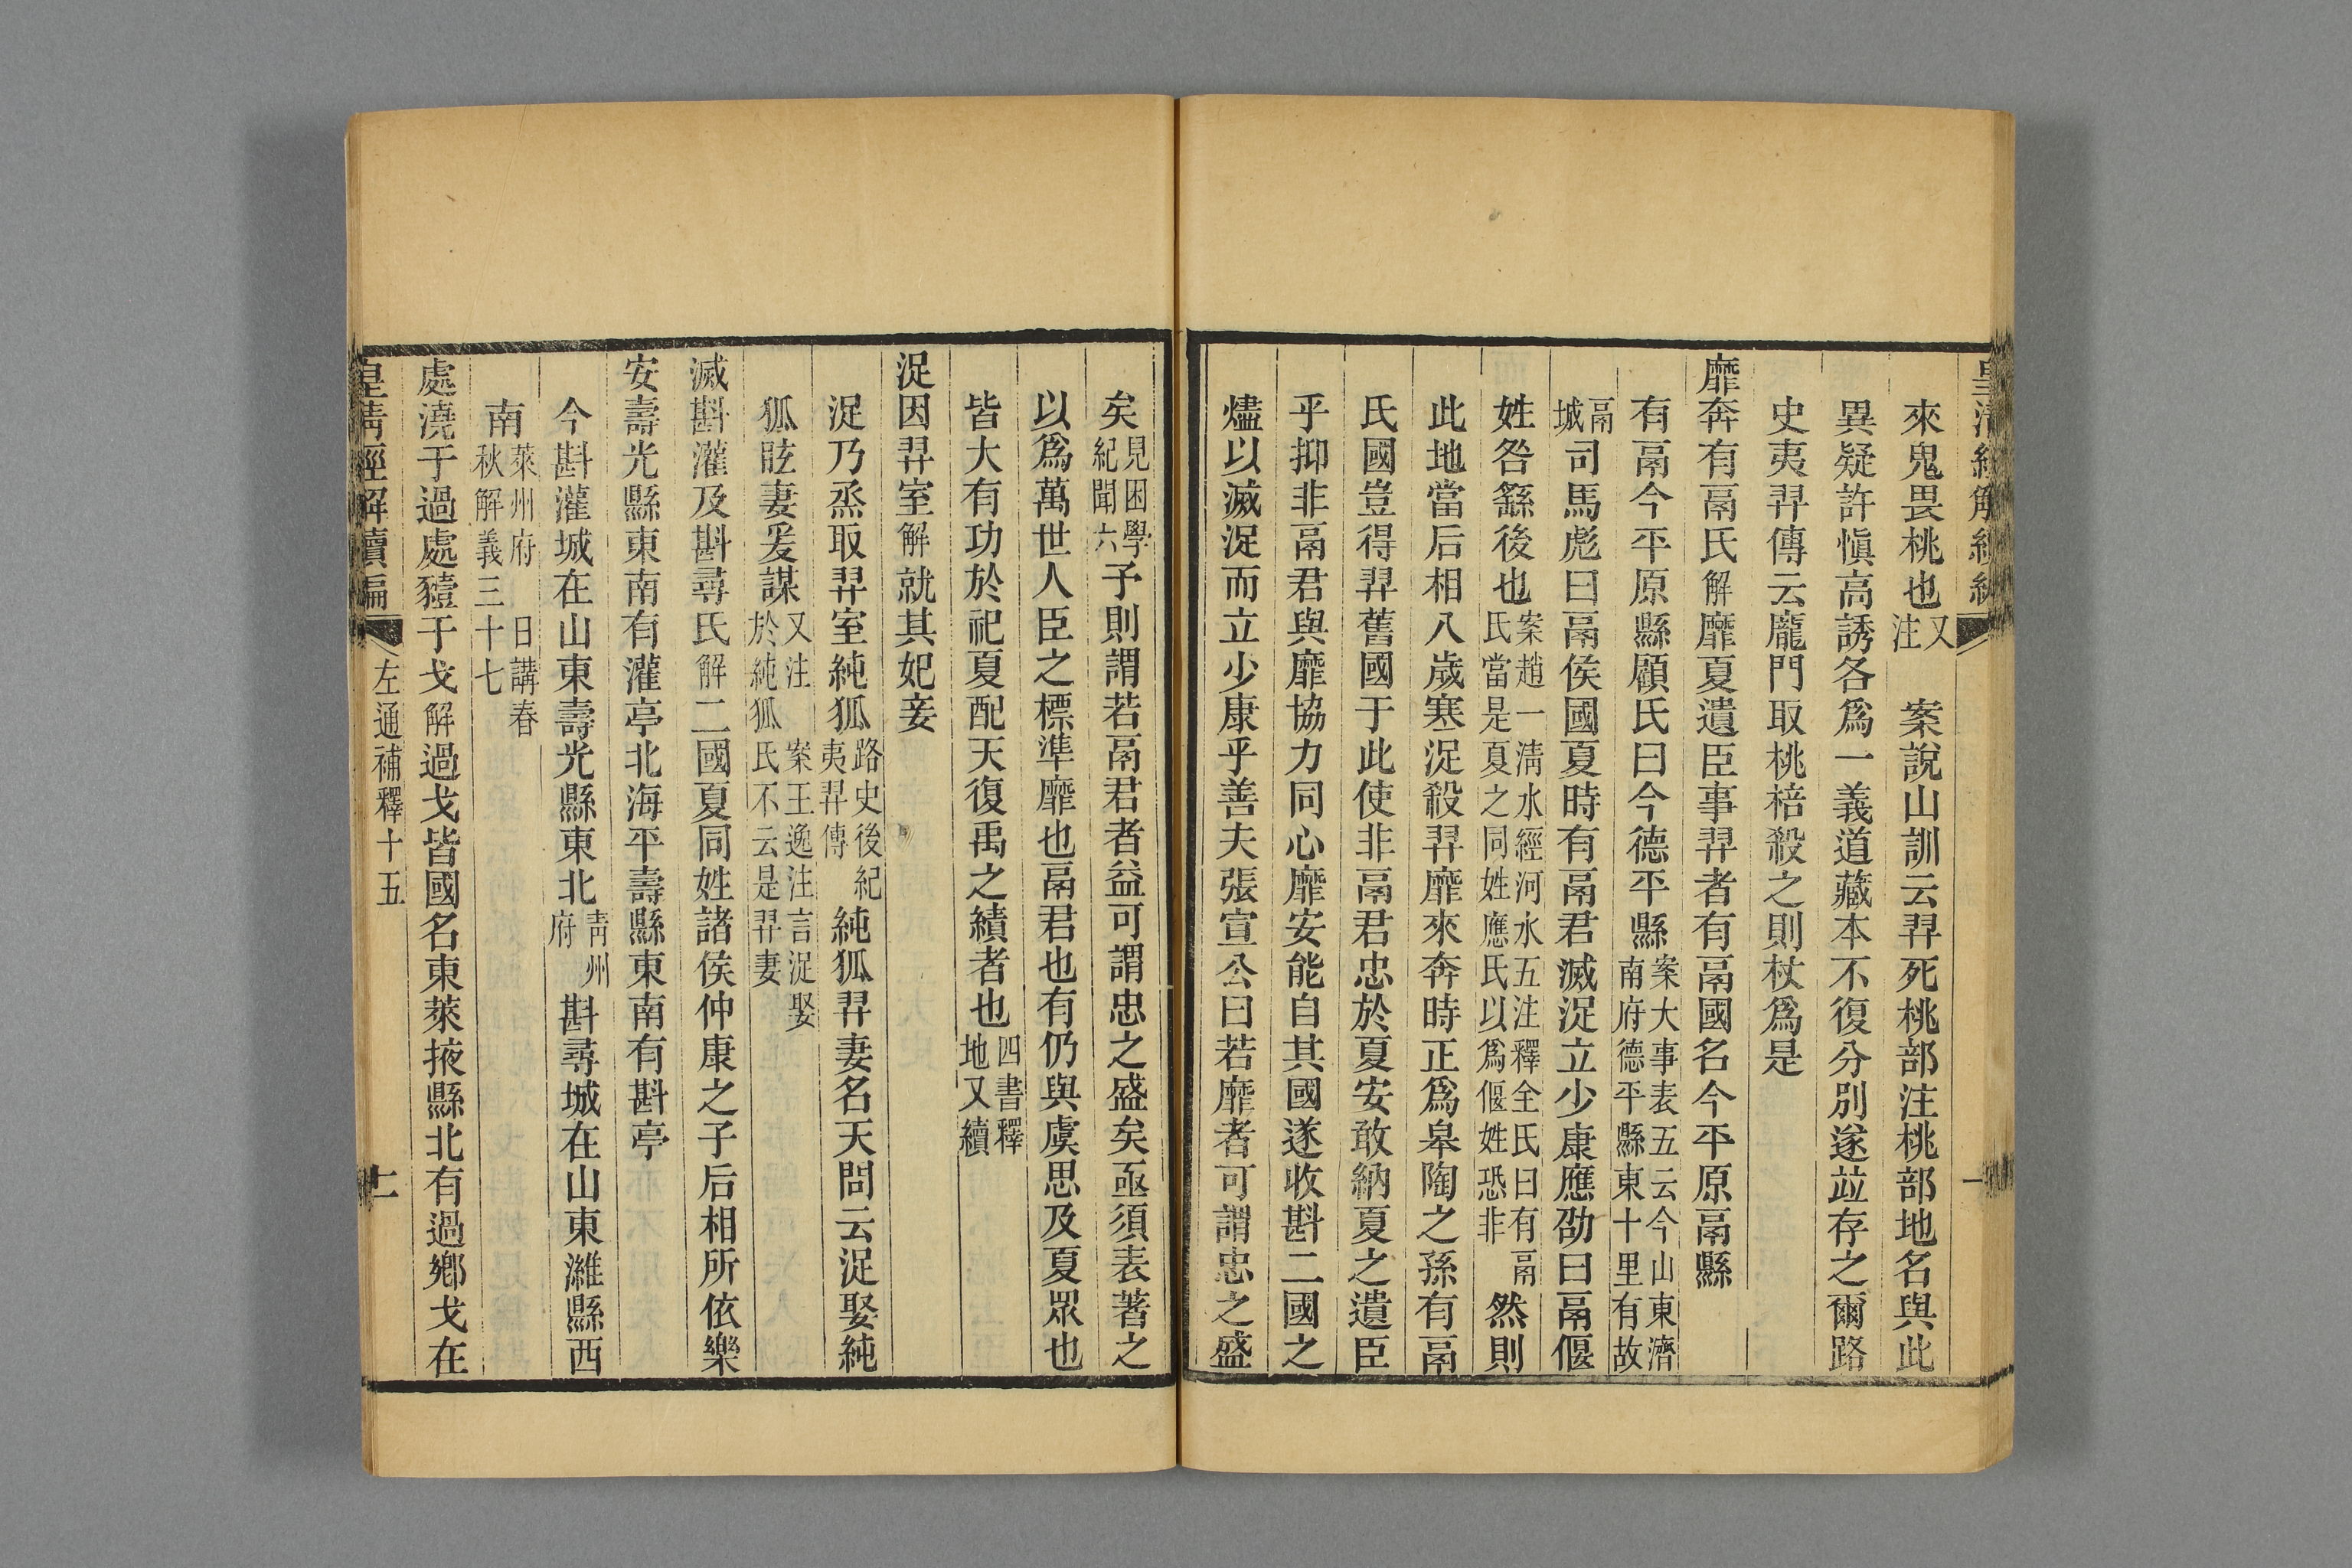 皇清經解續編
來鬼畏桃也又注 案說山訓云羿死桃部注桃部地名與此
異疑許愼高誘各爲一義道藏本不復分別遂竝存之爾路
史夷羿傳云龐門取桃棓殺之則杖爲是
靡奔有鬲氏解靡夏遺臣事羿者有鬲國名今平原鬲縣
有鬲今平原縣顧氏曰今德平縣案大事表五云今山東濟南府德平縣東十里有故
鬲城司馬彪曰鬲侯國夏時有鬲君滅浞立少康應劭曰鬲偃
姓咎繇後也案趙一淸水經河水五注釋全氏曰有鬲氏當是夏之同姓應氏以爲偃姓恐非然則
此地當后相八歲寒浞殺羿靡來奔時正爲皋陶之孫有鬲
氏國豈得羿舊國于此使非鬲君忠於夏安敢納夏之遺臣
乎抑非鬲君與靡協力同心靡安能自其國遂收斟二國之
燼以滅浞而立少康乎善夫張宣公曰若靡者可謂忠之盛
矣見困學紀聞六予則謂若鬲君者益可謂忠之盛矣亟須表著之
以爲萬世人臣之標準靡也鬲君也有仍與虞思及夏眾也
皆大有功於祀夏配天復禹之績者也四書釋地又續
浞因羿室解就其妃妾
浞乃烝取羿室純狐路史後紀夷羿傳純狐羿妻名天問云浞娶純
狐眩妻爰謀又注 案王逸注言浞娶於純狐氏不云是羿妻
滅斟灌及斟尋氏解二國夏同姓諸侯仲康之子后相所依樂
安壽光縣東南有灌亭北海平壽縣東南有斟亭
今斟灌城在山東壽光縣東北靑州府斟尋城在山東濰縣西
南萊州府 日講春秋解義三十七
處澆于過處豷于戈解過戈皆國名東萊掖縣北有過鄕戈在
皇淸經解續編 左通補釋十五 十一